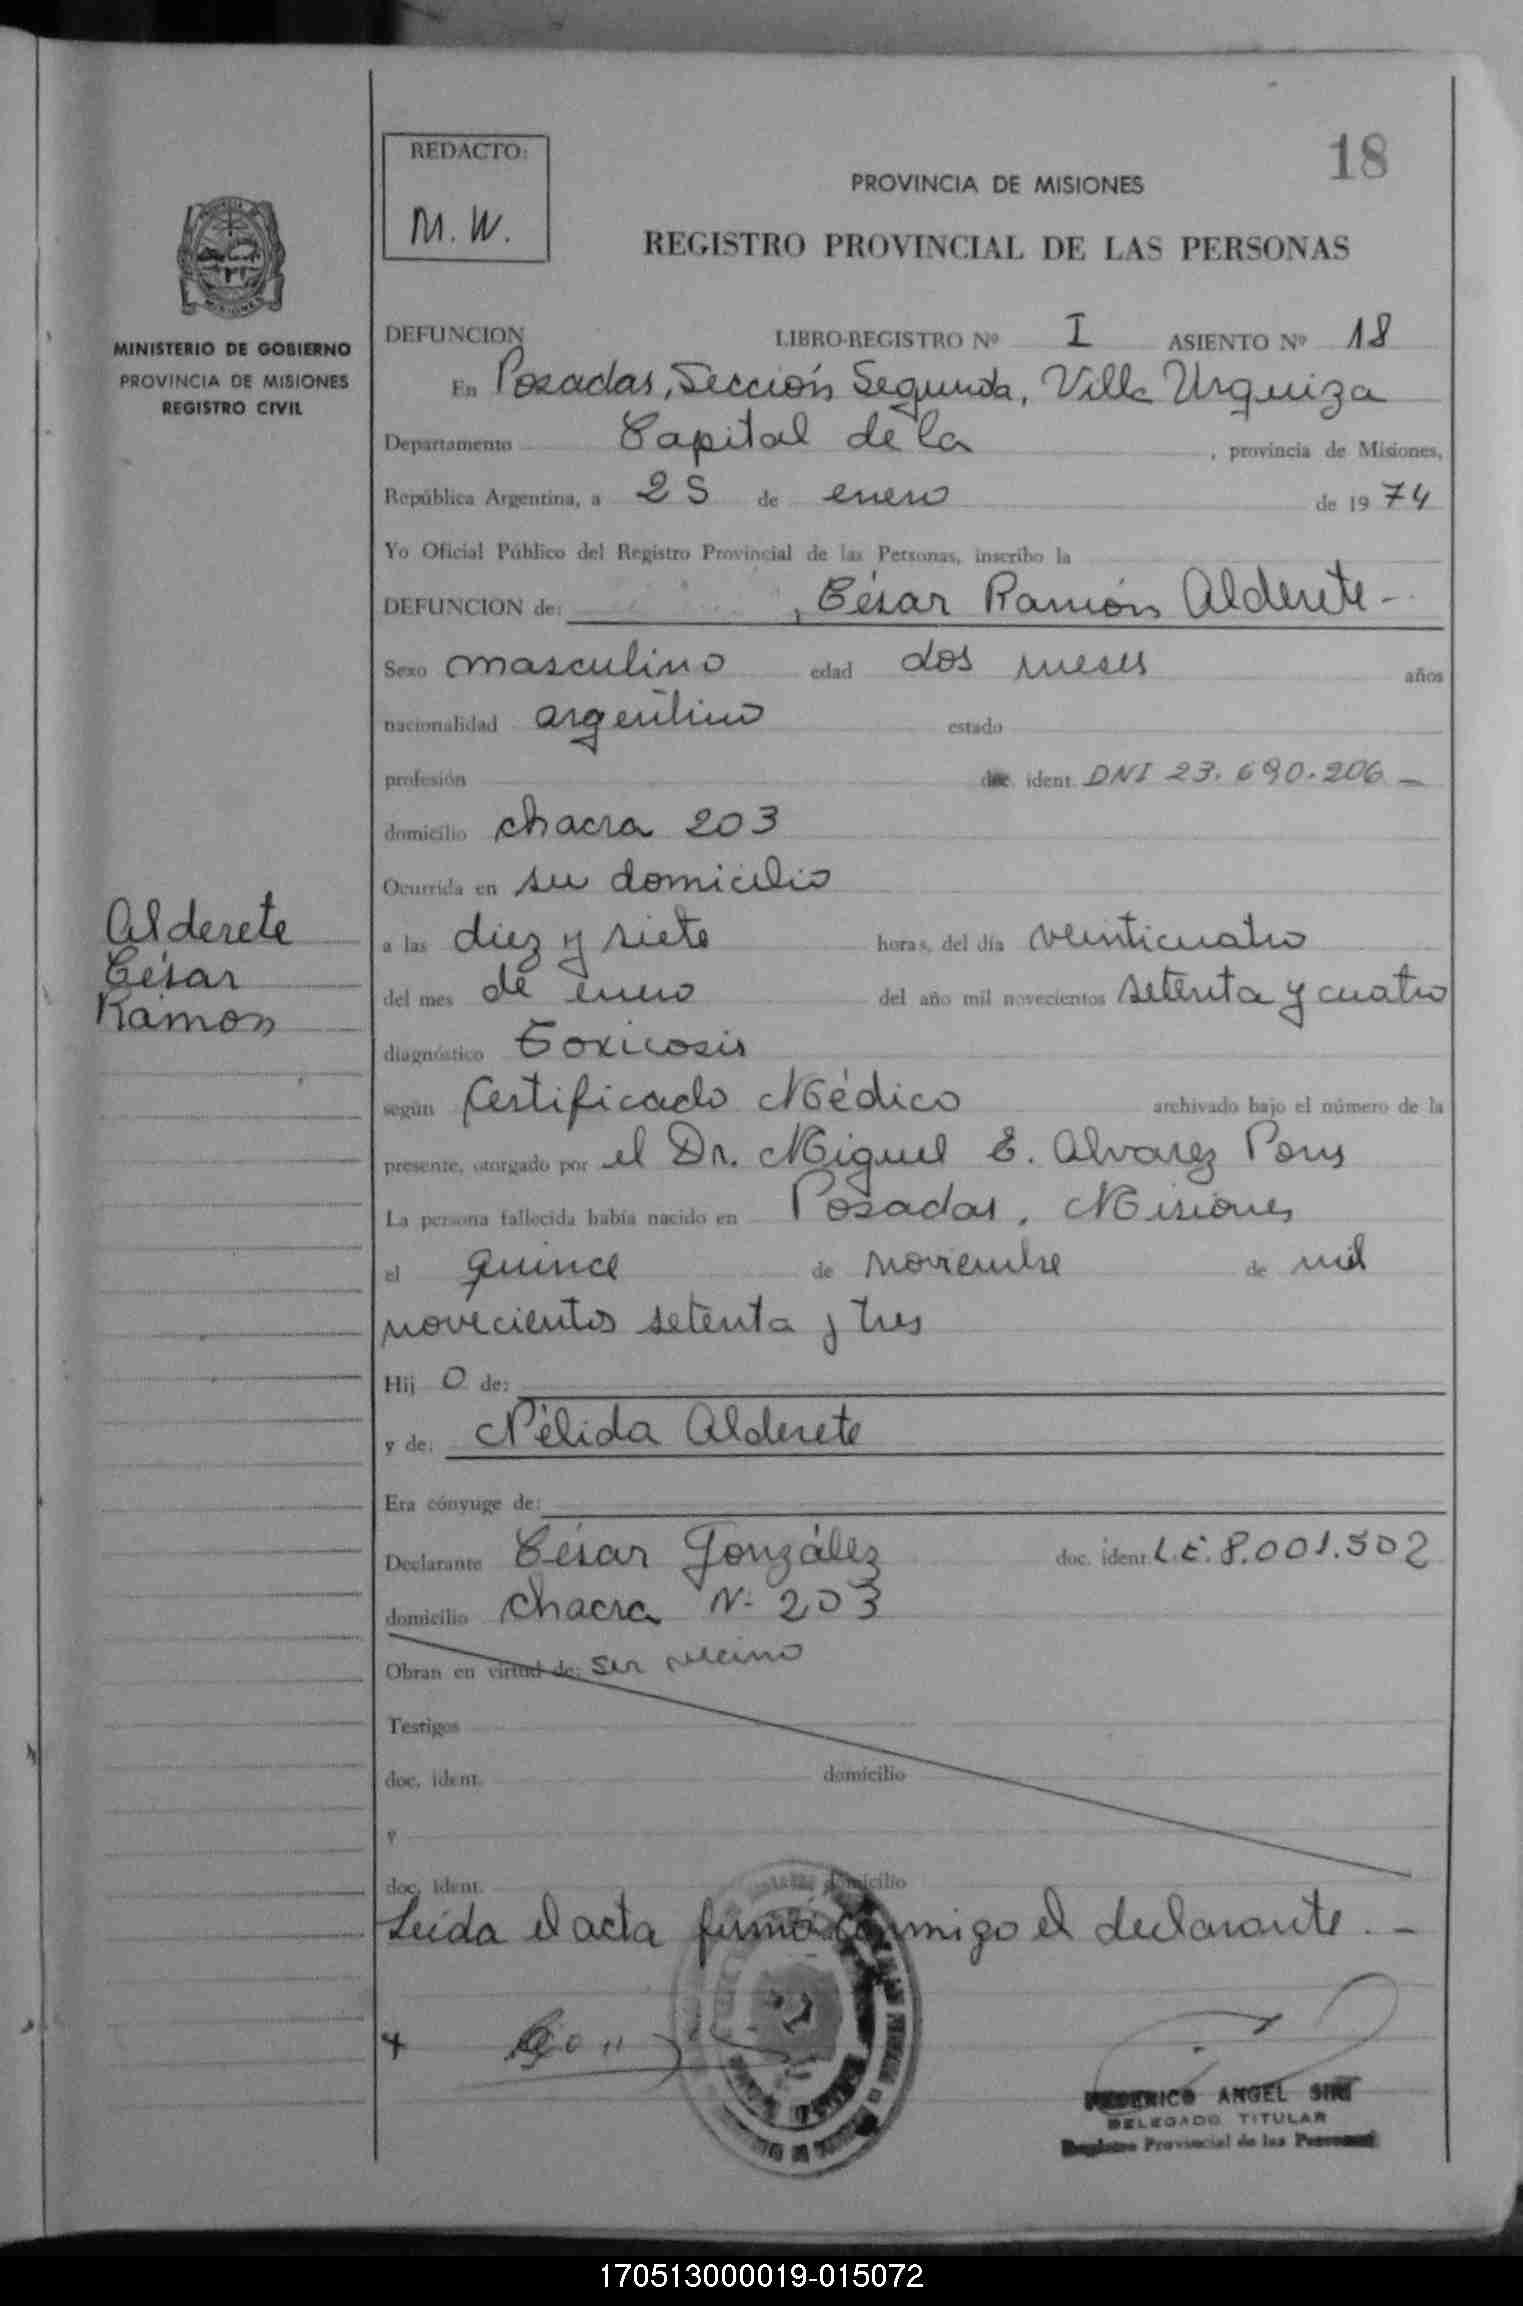 18
REDACTO:
M. W.
PROVINCIA DE MISIONES
REGISTRO PROVINCIAL DE LAS PERSONAS
MINISTERIO DE GOBIERNO
PROVINCIA DE MISIONES
REGISTRO CIVIL
DEFUNCION LIBRO-REGISTRO Nº I ASIENTO Nº 18
En Posadas, Sección Segunda, Villa Urquiza
Departamento Capital de la , provincia de Misiones,
República Argentina, a 25 de enero de 1974
Yo Oficial Público del Registro Provincial de las Personas, inscribo la
DEFUNCION de: , César Ramón Alderete -
Sexo masculino edad dos meses años
nacionalidad argentino estado
profesión doc. ident. DNI 23.690.206 -
domicilio chacra 203
Ocurrida en su domicilio
Alderete
César
Ramón
a las diez y siete horas, del día veinticuatro
del mes de enero del año mil novecientos setenta y cuatro
diagnóstico Toxicosis
según Certificado Médico archivado bajo el número de la
presente, otorgado por el Dr. Miguel E. Alvarez Pons
La persona fallecida había nacido en Posadas, Misiones
el quince de noviembre de mil
novecientos setenta y tres
Hij o de:
y de: Nélida Alderete
Era cónyuge de:
Declarante César González doc. ident. L.E. 8.001.502
domicilio chacra Nº 203
Obran en virtud de: ser vecino
Testigos
doc. ident. domicilio
y
doc. ident. domicilio
Leída el acta firmó conmigo el declarante. -
FEDERICO ANGEL SIRI
DELEGADO TITULAR
Registro Provincial de las Personas
170513000019-015072